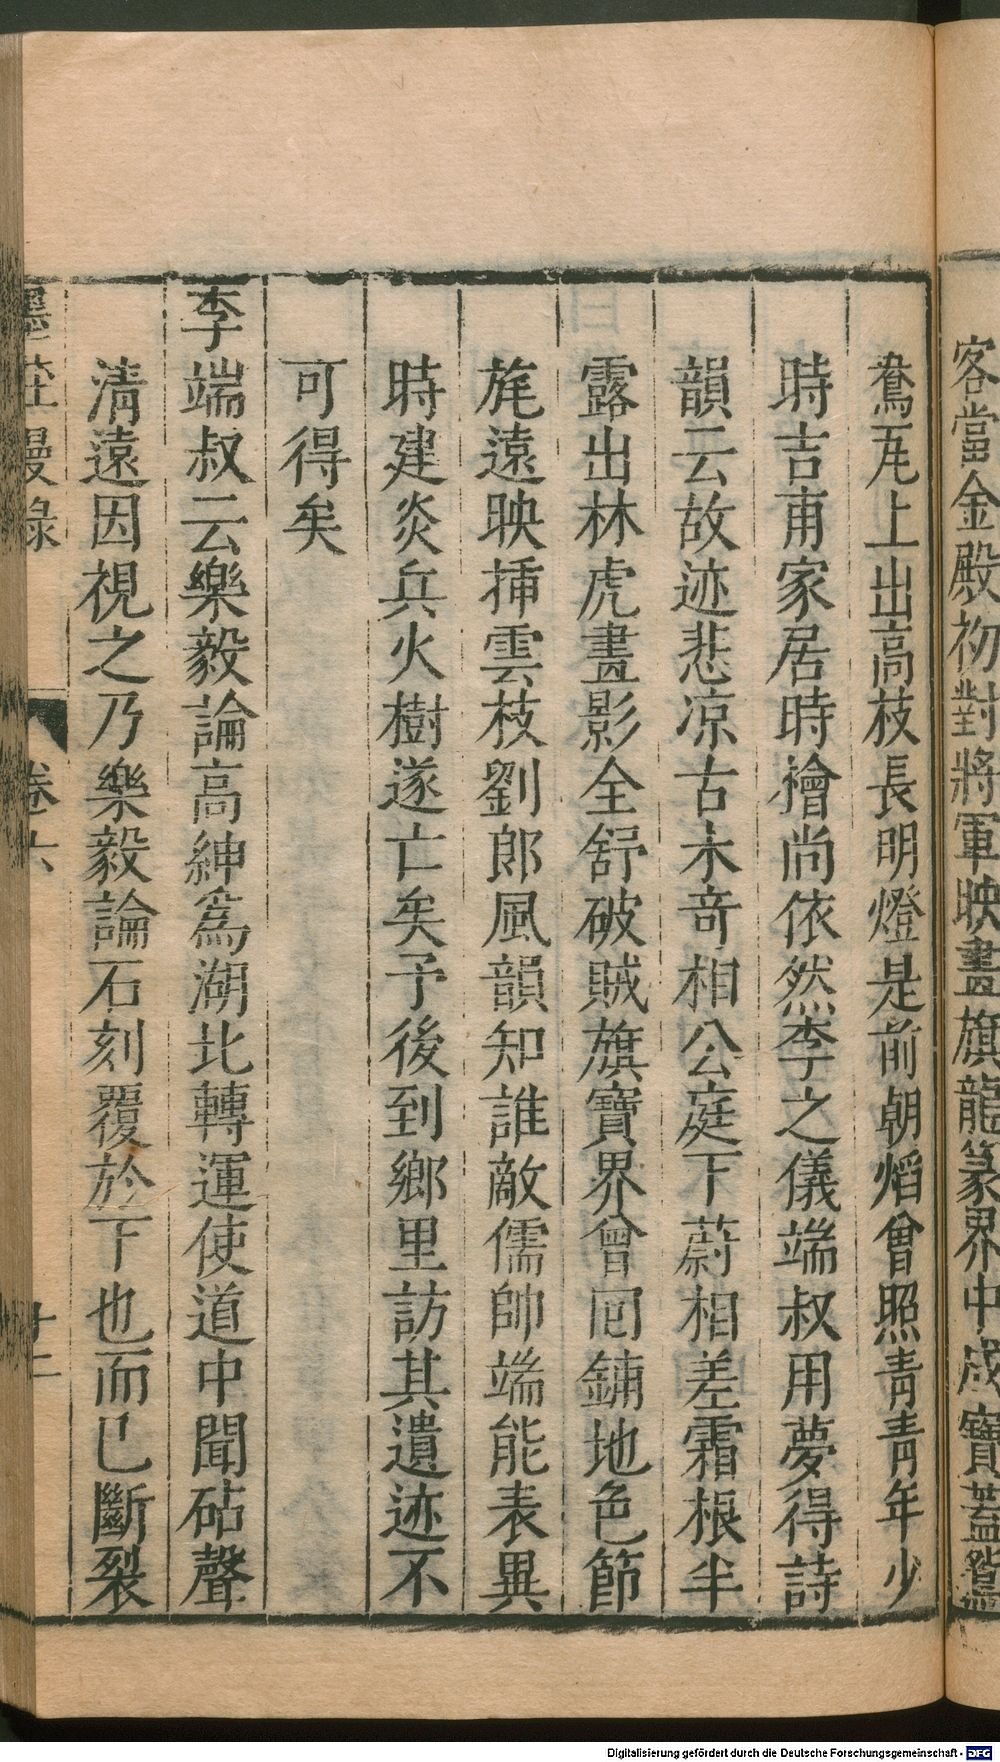 客當金殿初對將軍映畫旗龍篆界中成寶蓋鴛
鴦瓦上出高枝長明燈是前朝熖曾照青青年少
時吉甫家居時檜尚依然李之儀端叔用夢得詩
韻云故迹悲凉古木竒相公庭下蔚相差霜根半
露出林虎畫影全舒破賊旗寶界曾囘鋪地色節
旄遠映揷雲枝劉郎風韻知誰敵儒帥端能表異
時建炎兵火樹遂亡矣予後到鄉里訪其遺迹不
可得矣
李端叔云樂毅論高紳爲湖北轉運使道中聞砧聲
清遠因視之乃樂毅論石刻覆於下也而已斷裂
墨莊漫錄 卷六 十二
Digitalisierung gefördert durch die Deutsche Forschungsgemeinschaft - DFG